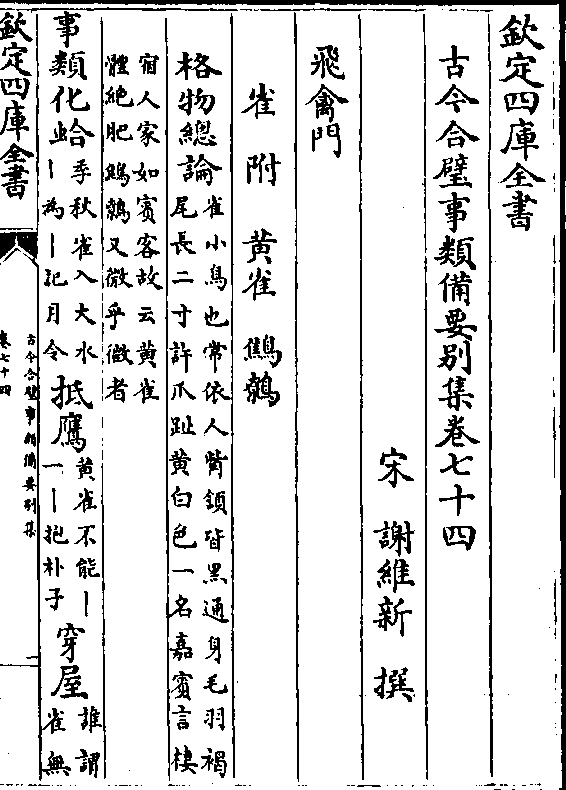 欽定四庫全書
古今合璧事類備要別集卷七十四
宋 謝維新 撰
飛禽門
雀 附 黄雀 鷦鷯
格物總論 雀小鳥也常依人觜頷皆黑通身毛羽褐
尾長二寸許爪趾黄白色一名嘉賓言棲
宿人家如賓客故云黄雀
體絶肥鷦鷯又微乎微者
事類化蛤 季秋雀入大水
丨為丨記月令
抵鷹 黄雀不能丨
丨丨抱朴子
穿屋 誰謂
雀無
欽定四庫全書
古今合璧事類備要別集
卷七十四
一